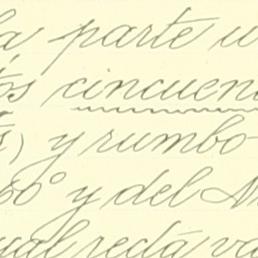 la parte u
tos cincuen
s) y rumbo-
60° y del N
ual redá va